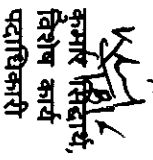 कुमार सिद्धार्थ,
विशेष कार्य
पदाधिकारी